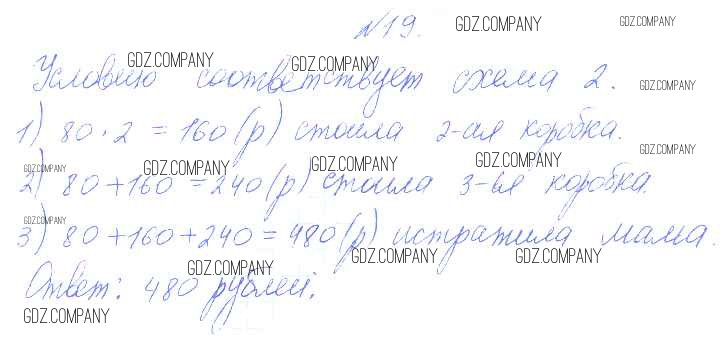 №19. GDZ.COMPANY GDZ.COMPANY
GDZ.COMPANY GDZ.COMPANY
Условию соответствует схема 2. GDZ.COMPANY
1) 80 · 2 = 160 (р) стоила 2-ая коробка.
GDZ.COMPANY GDZ.COMPANY GDZ.COMPANY GDZ.COMPANY GDZ.COMPANY
2) 80 + 160 = 240 (р) стоила 3-ья коробка.
GDZ.COMPANY
3) 80 + 160 + 240 = 480 (р) истратила мама.
GDZ.COMPANY GDZ.COMPANY GDZ.COMPANY
Ответ: 480 рублей.
GDZ.COMPANY